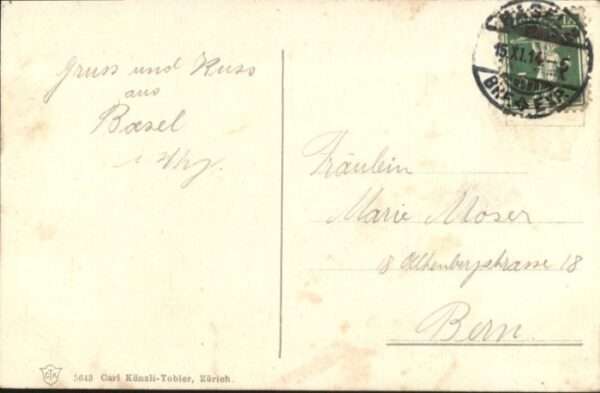 Gruss und Kuss
aus
Basel
BASEL
15.XI.14
BRF. EXP.
Fräulein
Marie Moser
18 Altenbergstrasse 18
Bern.
5643 Carl Künzli-Tobler, Zürich.